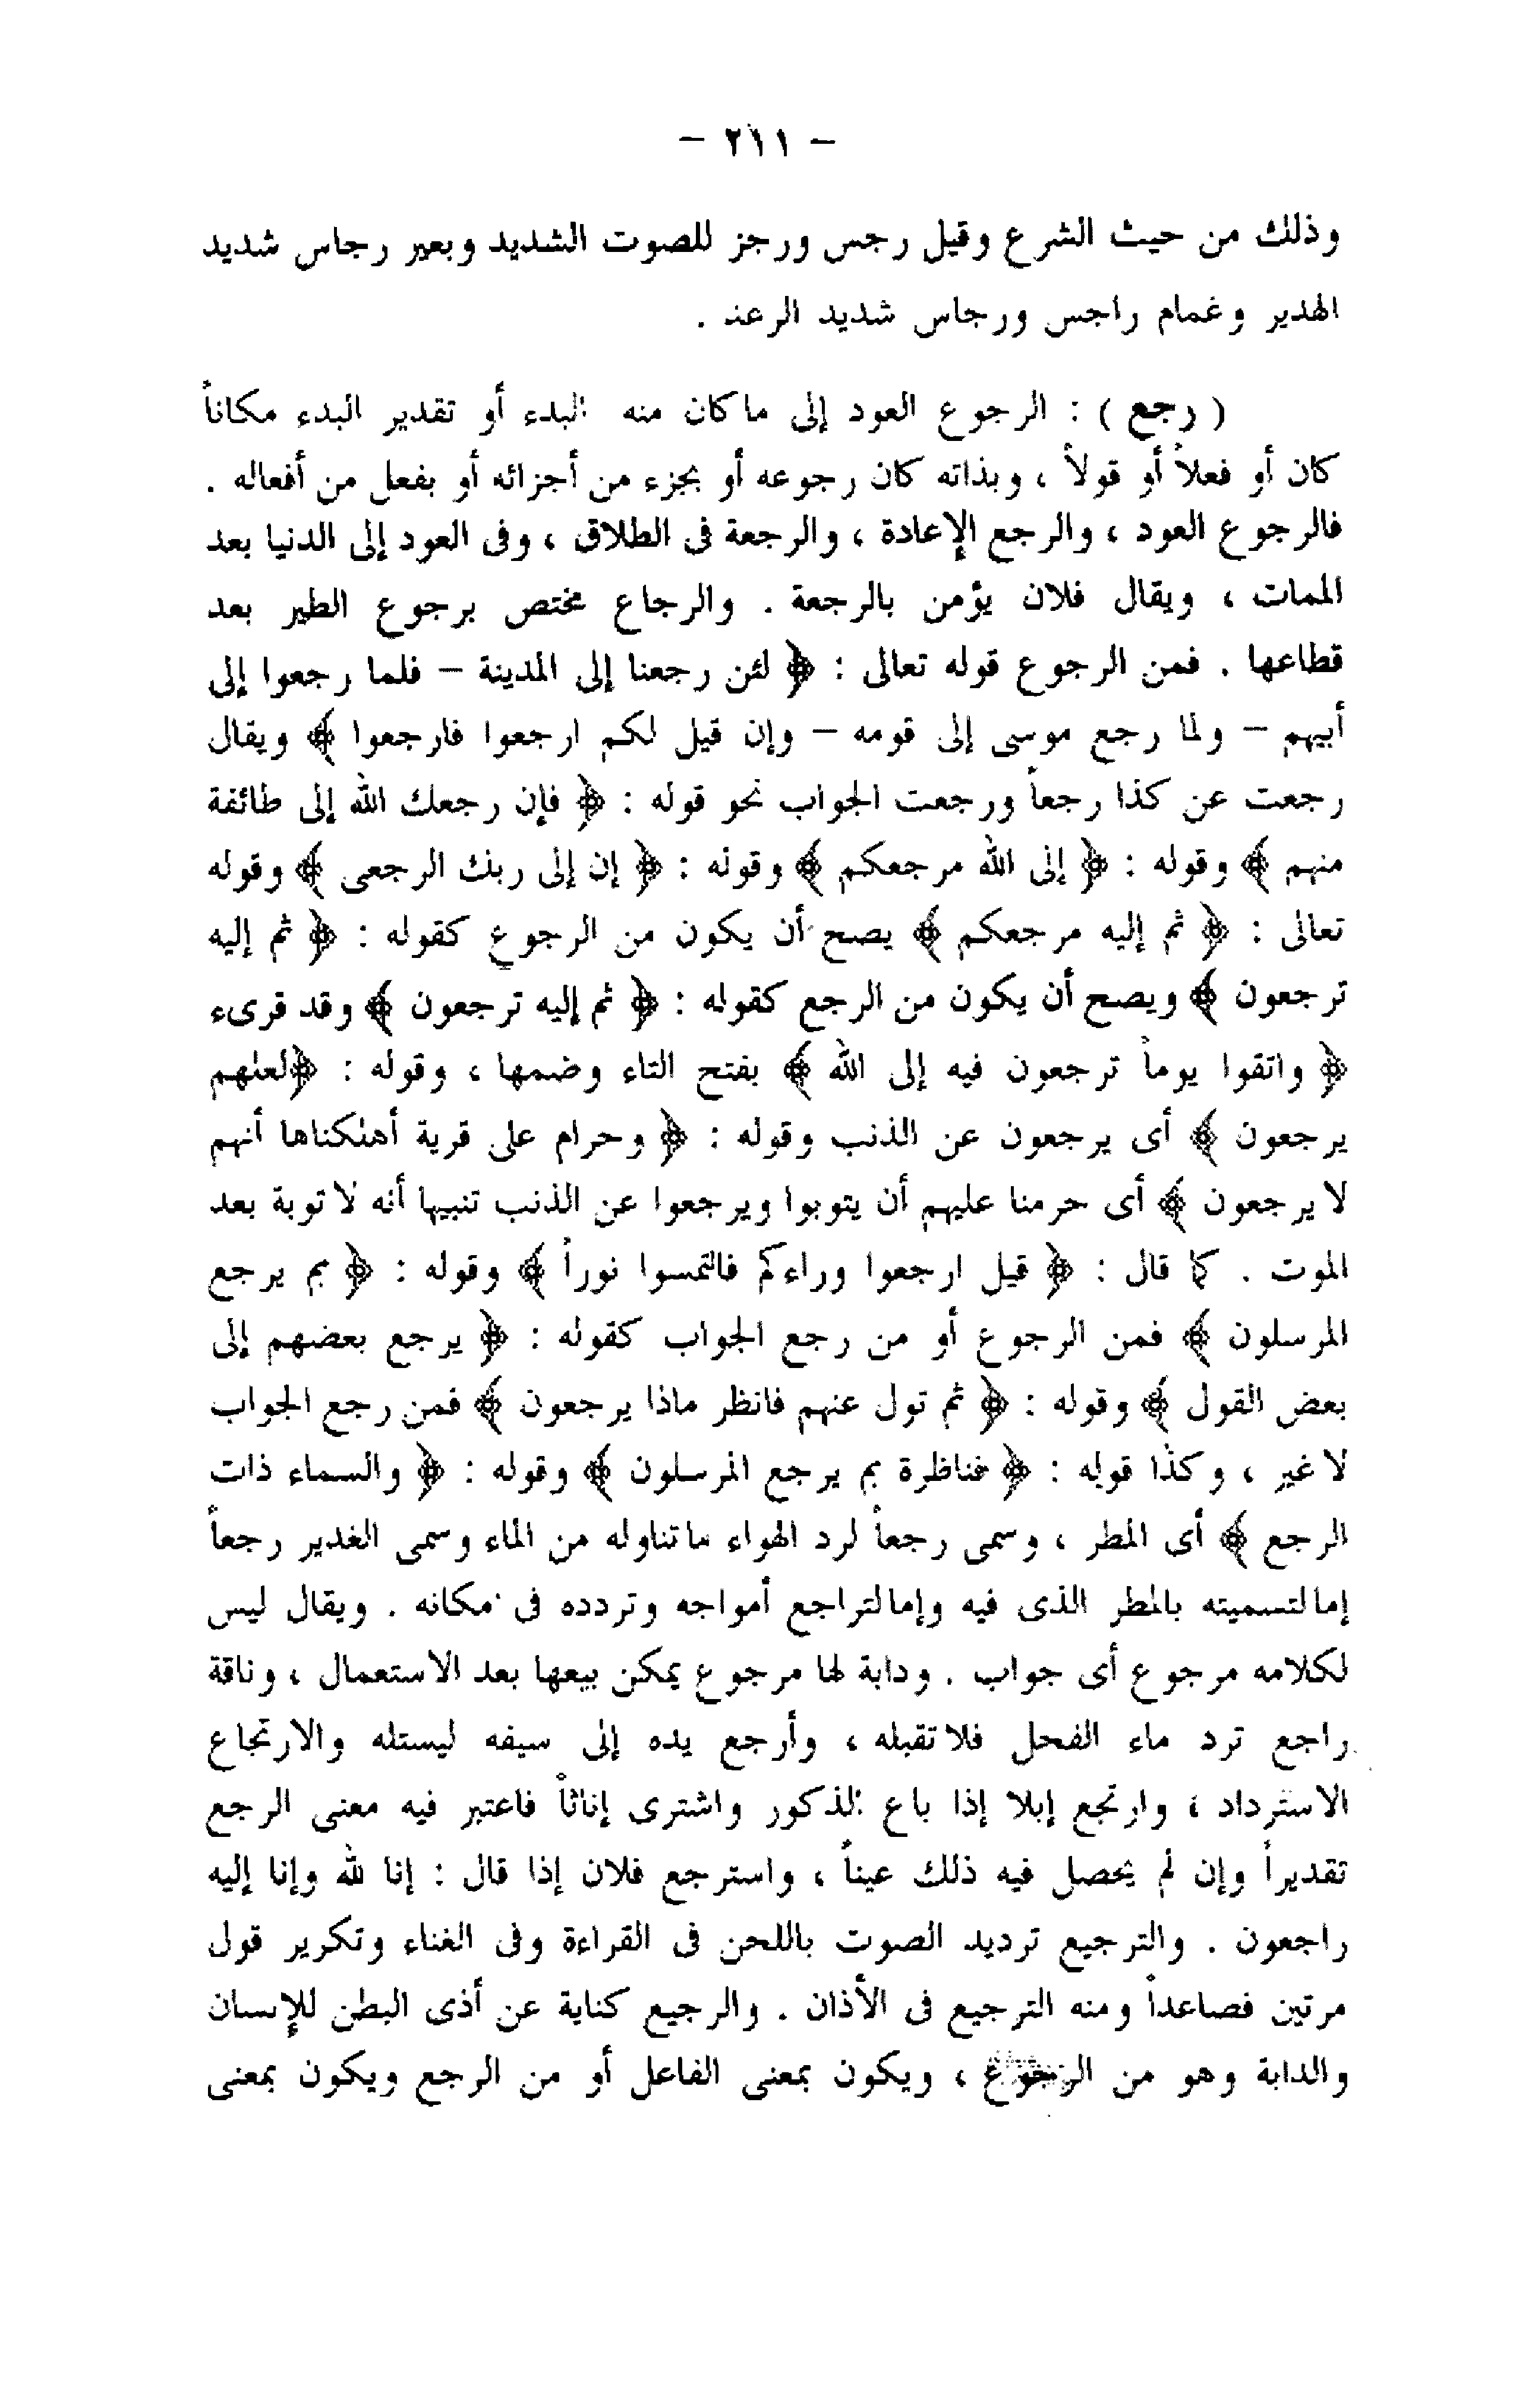 — ٢١١ —
وذلك من حيث الشرع وقيل رجس ورجز للصوت الشديد وبعير رجاس شديد
الهدير وغمام راجس ورجاس شديد الرعد .
( رجع ) : الرجوع العود إلى ما كان منه البدء أو تقدير البدء مكاناً
كان أو فعلاً أو قولاً ، وبذاته كان رجوعه أو بجزء من أجزائه أو بفعل من أفعاله .
فالرجوع العود ، والرجع الإعادة ، والرجعة فى الطلاق ، وفى العود إلى الدنيا بعد
الممات ، ويقال فلان يؤمن بالرجعة . والرجاع مختص برجوع الطير بعد
قطاعها . فمن الرجوع قوله تعالى : ﴿ لئن رجعنا إلى المدينة – فلما رجعوا إلى
أبيهم – ولما رجع موسى إلى قومه – وإن قيل لكم ارجعوا فارجعوا ﴾ ويقال
رجعت عن كذا رجعاً ورجعت الجواب نحو قوله : ﴿ فإن رجعك الله إلى طائفة
منهم ﴾ وقوله : ﴿ إلى الله مرجعكم ﴾ وقوله : ﴿ إن إلى ربك الرجعى ﴾ وقوله
تعالى : ﴿ ثم إليه مرجعكم ﴾ يصح أن يكون من الرجوع كقوله : ﴿ ثم إليه
ترجعون ﴾ ويصح أن يكون من الرجع كقوله : ﴿ ثم إليه ترجعون ﴾ وقد قرىء
﴿ واتقوا يوماً ترجعون فيه إلى الله ﴾ بفتح التاء وضمها ، وقوله : ﴿لعلهم
يرجعون ﴾ أى يرجعون عن الذنب وقوله : ﴿ وحرام على قرية أهلكناها أنهم
لا يرجعون ﴾ أى حرمنا عليهم أن يتوبوا ويرجعوا عن الذنب تنبيها أنه لا توبة بعد
الموت . كما قال : ﴿ قيل ارجعوا وراءكم فالتمسوا نوراً ﴾ وقوله : ﴿ بم يرجع
المرسلون ﴾ فمن الرجوع أو من رجع الجواب كقوله : ﴿ يرجع بعضهم إلى
بعض القول ﴾ وقوله : ﴿ ثم تول عنهم فانظر ماذا يرجعون ﴾ فمن رجع الجواب
لا غير ، وكذا قوله : ﴿ فناظرة بم يرجع المرسلون ﴾ وقوله : ﴿ والسماء ذات
الرجع ﴾ أى المطر ، وسمى رجعاً لرد الهواء ما تناوله من الماء وسمى الغدير رجعاً
إما لتسميته بالمطر الذى فيه وإما لتراجع أمواجه وتردده فى مكانه . ويقال ليس
لكلامه مرجوع أى جواب . ودابة لها مرجوع يمكن بيعها بعد الاستعمال ، وناقة
راجع ترد ماء الفحل فلا تقبله ، وأرجع يده إلى سيفه ليستله والارتجاع
الاسترداد ، وارتجع إبلا إذا باع الذكور واشترى إناثاً فاعتبر فيه معنى الرجع
تقديراً وإن لم يحصل فيه ذلك عيناً ، واسترجع فلان إذا قال : إنا لله وإنا إليه
راجعون . والترجيع ترديد الصوت باللحن فى القراءة وفى الغناء وتكرير قول
مرتين فصاعداً ومنه الترجيع فى الأذان . والرجيع كناية عن أذى البطن للإنسان
والدابة وهو من الرجوع ، ويكون بمعنى الفاعل أو من الرجع ويكون بمعنى